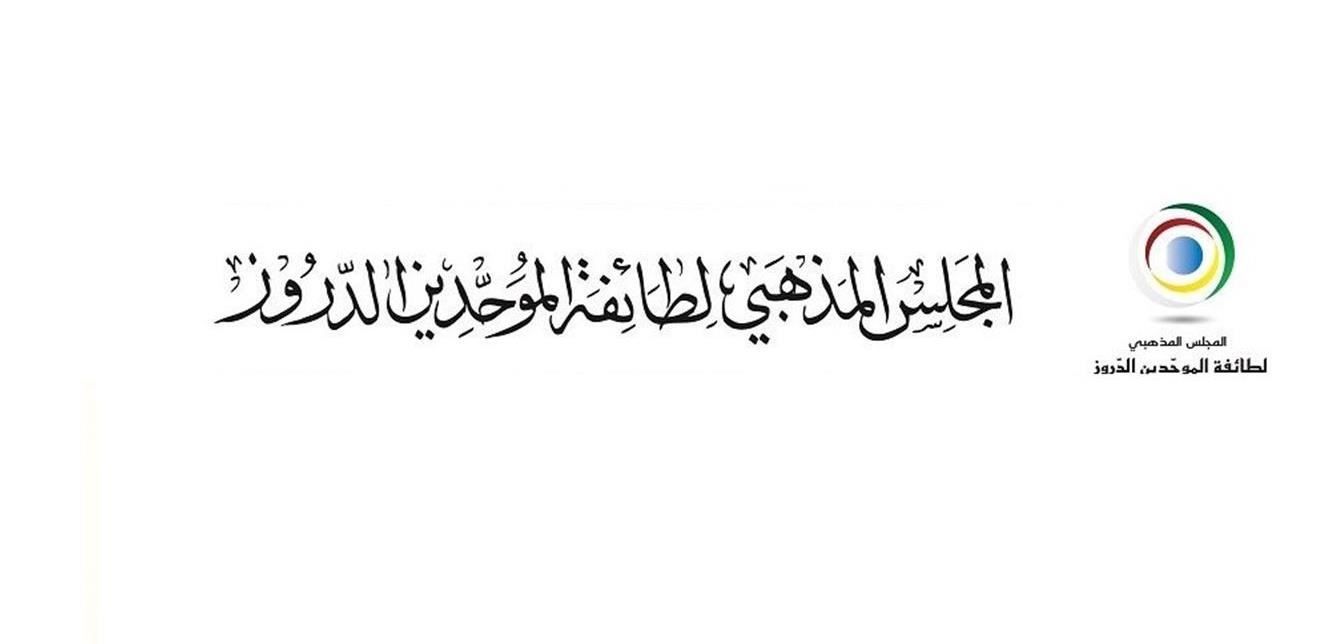 المجَلِسُ المَذهَبي لِطَائِفَة الموَُحّدِين الدّرُوز
المجلس المذهبي
لطائفة الموحّدين الدّروز